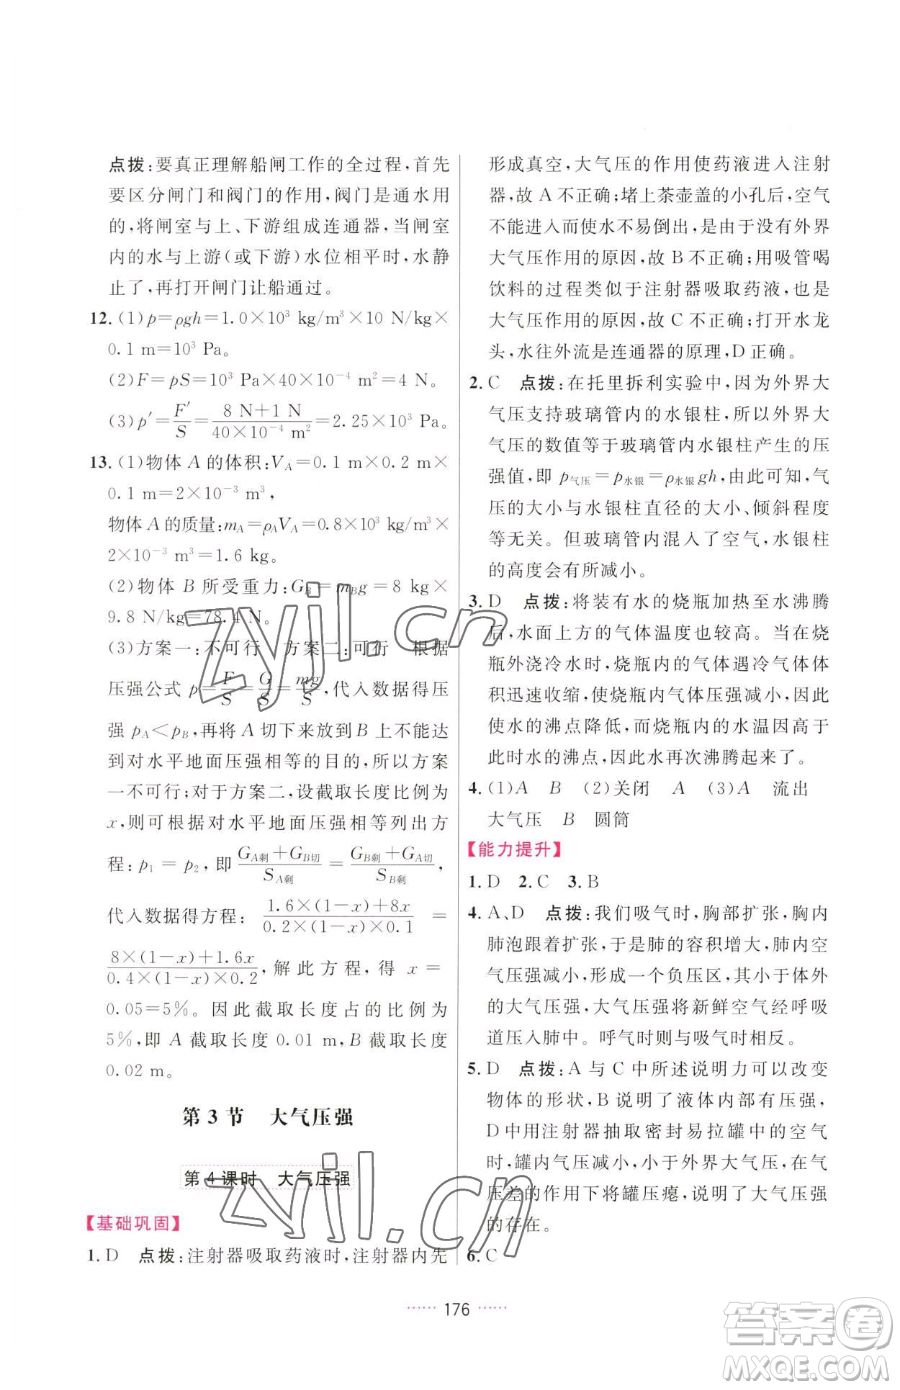 点拨:要真正理解船闸工作的全过程,首先
要区分闸门和阀门的作用,阀门是通水用
的,将闸室与上、下游组成连通器,当闸室
内的水与上游(或下游)水位相平时,水静
止了,再打开闸门让船通过。
12. (1)p=ρgh=1.0×10³ kg/m³×10 N/kg×
0.1 m=10³ Pa。
(2)F=pS=10³ Pa×40×10⁻⁴ m²=4 N。
(3)p′=F′/S=(8 N+1 N)/(40×10⁻⁴ m²)=2.25×10³ Pa。
13. (1)物体 A 的体积:V_A=0.1 m×0.2 m×
0.1 m=2×10⁻³ m³,
物体 A 的质量:m_A=ρ_A V_A=0.8×10³ kg/m³×
2×10⁻³ m³=1.6 kg。
(2)物体 B 所受重力:G_B=m_B g=8 kg×
9.8 N/kg=78.4 N。
(3)方案一:不可行 方案二:可行 根据
压强公式 p=F/S=G/S=mg/S,代入数据得压
强 p_A<p_B,再将 A 切下来放到 B 上不能达
到对水平地面压强相等的目的。故方案
一不可行;对于方案二,设截取长度比例为
x,则可根据对水平地面压强相等列出方
程:p₁=p₂,即(G_A剩+G_B切)/S_A剩=(G_B剩+G_A切)/S_B剩,
代入数据得方程:(1.6×(1-x)+8x)/(0.2×(1-x)×0.1)=
(8×(1-x)+1.6x)/(0.4×(1-x)×0.2),解此方程,得 x=
0.05=5%。因此截取长度占的比例为
5%,即 A 截取长度 0.01 m,B 截取长度
0.02 m。
第 3 节 大气压强
第 4 课时 大气压强
【基础巩固】
1. D 点拨:注射器吸取药液时,注射器内先
形成真空,大气压的作用使药液进入注射
器,故 A 不正确;堵上茶壶盖的小孔后,空气
不能进入而使水不易倒出,是由于没有外界
大气压作用的原因,故 B 不正确;用吸管喝
饮料的过程类似于注射器吸取药液,也是
大气压作用的原因,故 C 不正确;打开水龙
头,水往外流是连通器的原理,D 正确。
2. C 点拨:在托里拆利实验中,因为外界大
气压支持玻璃管内的水银柱,所以外界大
气压的数值等于玻璃管内水银柱产生的压
强值,即 p气压=p水银=ρ水银gh,由此可知,大气
压的大小与水银柱直径的大小、倾斜程度
等无关。但玻璃管内混入了空气,水银柱
的高度会有所减小。
3. D 点拨:将装有水的烧瓶加热至水沸腾
后,水面上方的气体温度也较高。当在烧
瓶外浇冷水时,烧瓶内的气体遇冷气体体
积迅速收缩,使烧瓶内气体压强减小,因此
使水的沸点降低,而烧瓶内的水温因高于
此时水的沸点,因此水再次沸腾起来。
4. (1)A B (2)关闭 A (3)A 流出
大气压 B 圆筒
【能力提升】
1. D 2. C 3. B
4. A、D 点拨:我们吸气时,胸部扩张,胸内
肺泡跟着扩张,于是肺的容积增大,肺内空
气压强减小,形成一个负压区,其小于体外
的大气压强,大气压强将新鲜空气经呼吸
道压入肺中。呼气时则与吸气时相反。
5. D 点拨:A 与 C 中所述说明力可以改变
物体的形状,B 说明了液体内部有压强,
D 中用注射器抽取密封易拉罐中的空气
时,罐内气压减小,小于外界大气压,在气
压差的作用下将罐压瘪,说明了大气压强
的存在。
6. C
176
zyjl.cn
zyjl.cn
答案圈
MXQE.COM